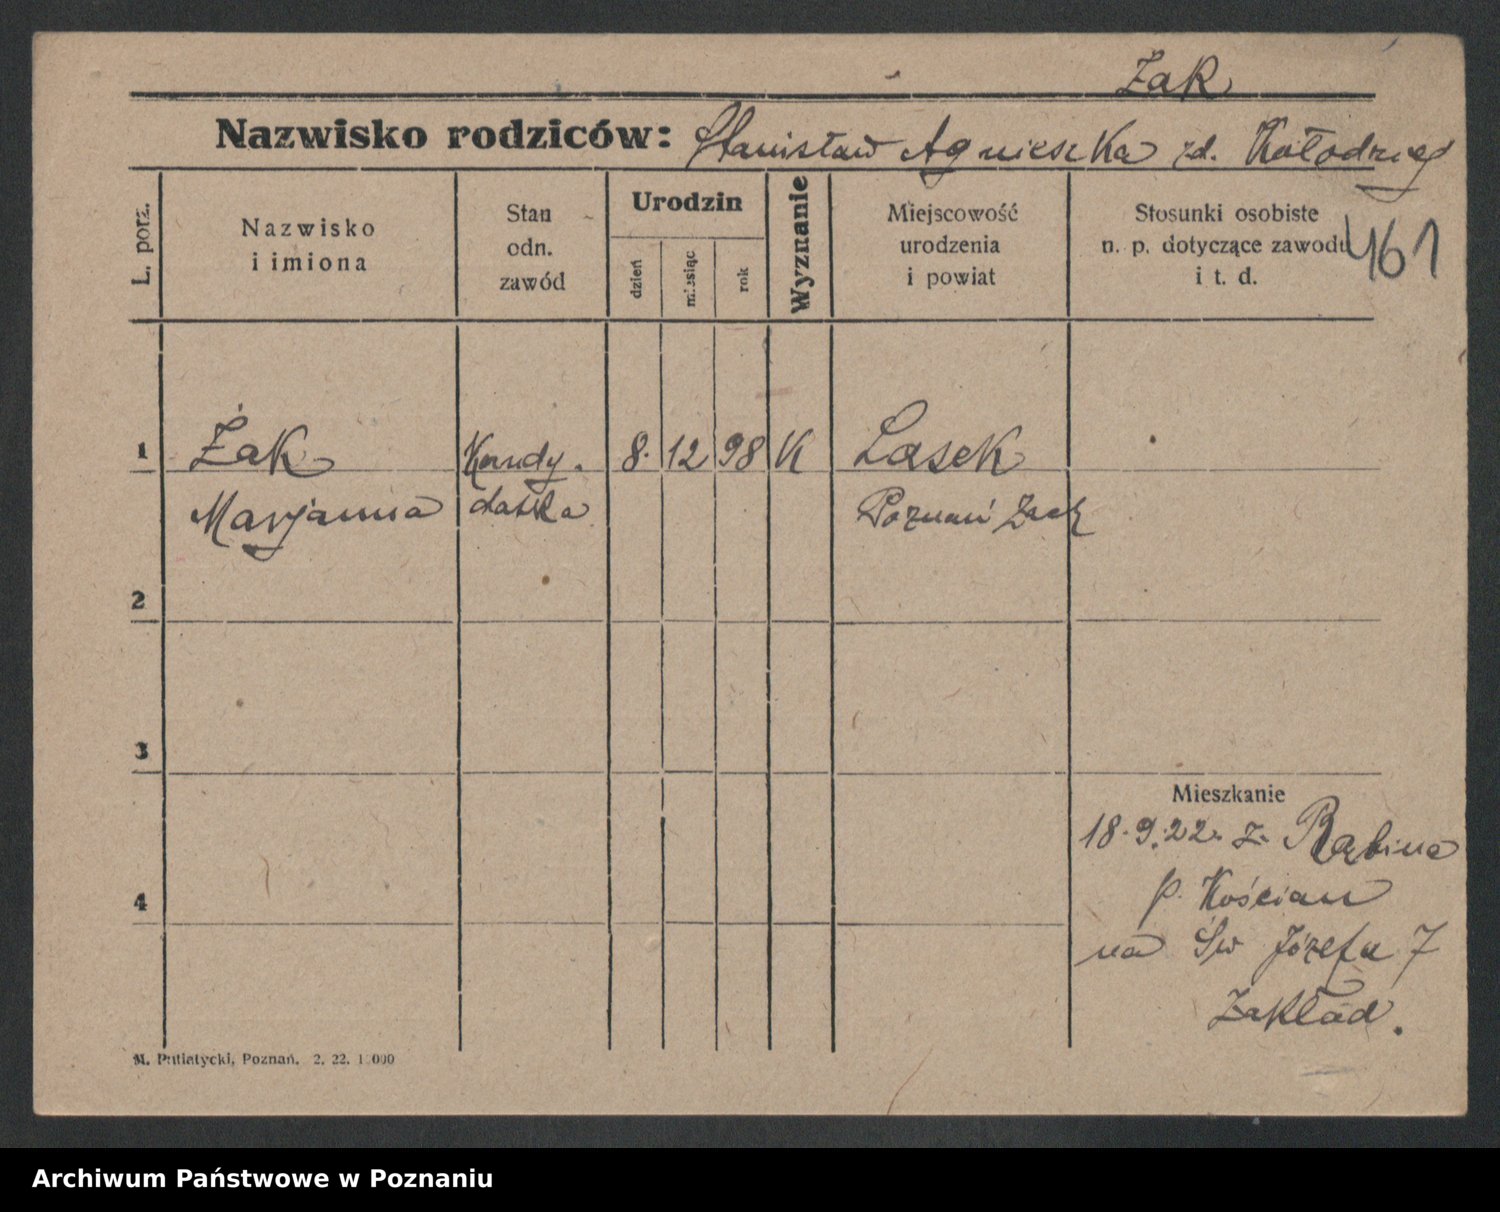 Żak
Nazwisko rodziców: Stanisław Agnieszka zd. Kołodziej
L. porz.
Nazwisko
i imiona
Stan
odn.
zawód
Urodzin
dzień
miesiąc
rok
Wyznanie
Miejscowość
urodzenia
i powiat
Stosunki osobiste
n. p. dotyczące zawodu
i t. d.
461
1 Żak Kandy. 8. 12 98 K Lasek
Marjanna datka Poznań Zach
2
3
Mieszkanie
18.9.22. z. Rąbina
p. Kościan
4
na Św Józefa 7
Zakład.
M. Putiatycki, Poznań. 2. 22. 1 000
Archiwum Państwowe w Poznaniu